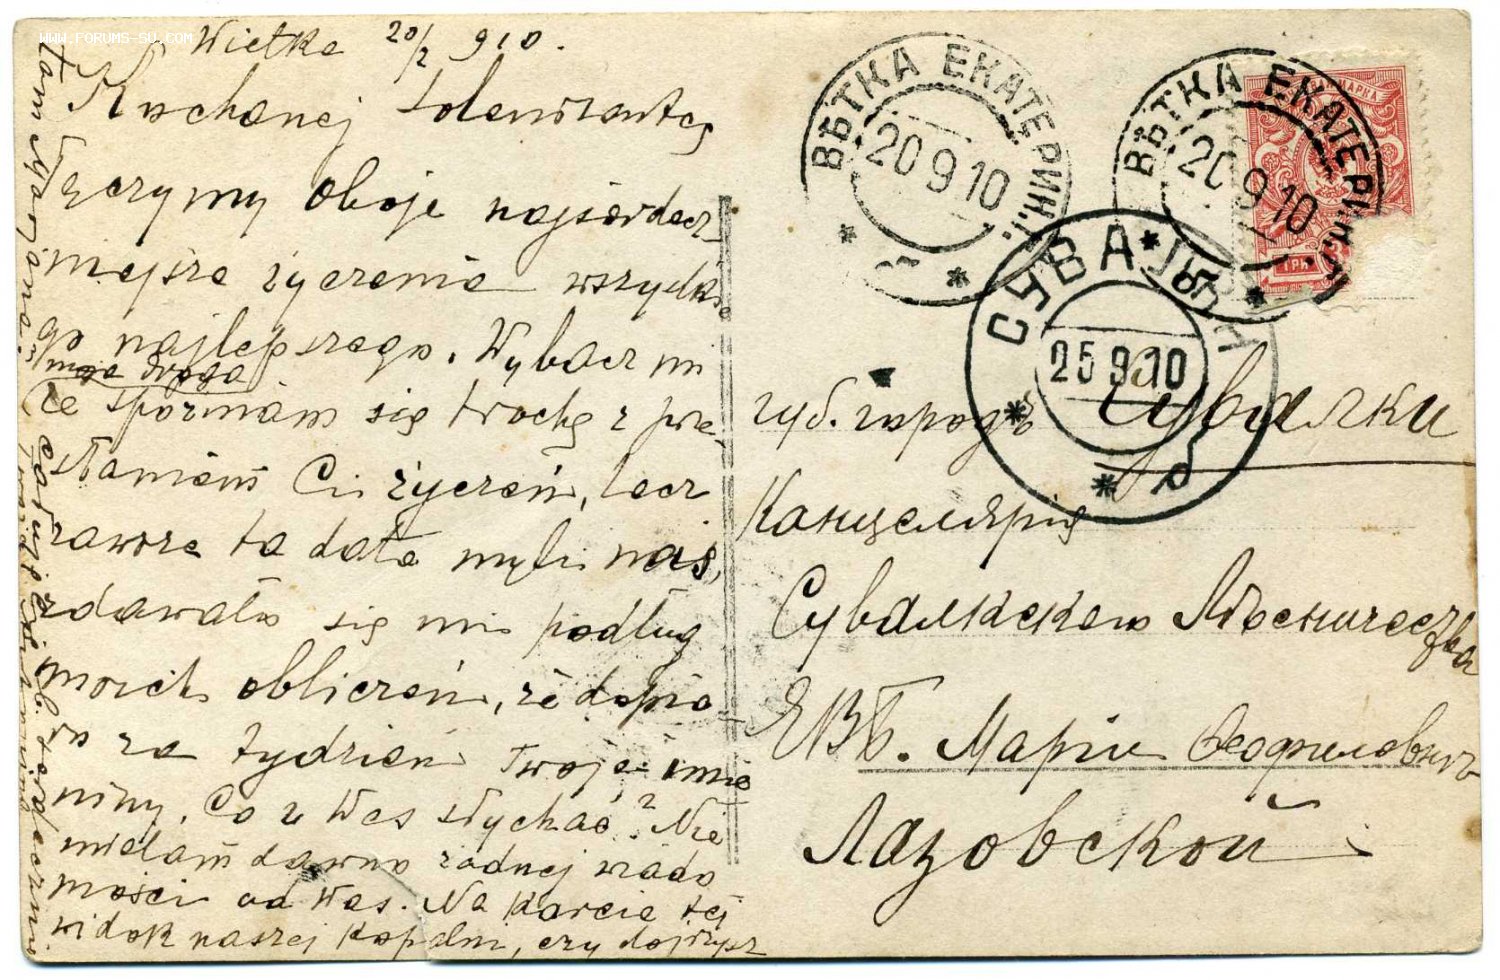 WWW.FORUMS-SU.COM
Wietka 20/2 910.
Kochanej Solenizantce
łączymy oboje najserdecz-
niejsze życzenia wszystkie-
go najlepszego. Wybacz mi
moja droga
że spóźniam się trochę z prze-
słaniem Ci życzeń, lecz
zawsze ta data myli nas,
zdawało się mi podług
moich obliczeń, że dopie-
ro za tydzień Twoje imie
niny. Co u Was słychać? Nie
miałam dawno żadnej wiado
mości od Was. Na karcie tej
widok naszej kopalni, czy dojrzysz
tam
całuję Cię
serdecznie
ВѢТКА ЕКАТЕРИН.
20 9 10
ВѢТКА ЕКАТЕРИН.
20 9 10
МАРКА
ТРИ
СУВАЛКИ
25 9 10
губ. городъ Сувалки
Канцелярія
Сувалкскаго Лѣсничества
ЕВБ. Маріи Ѳеофиловнѣ
Лазовской